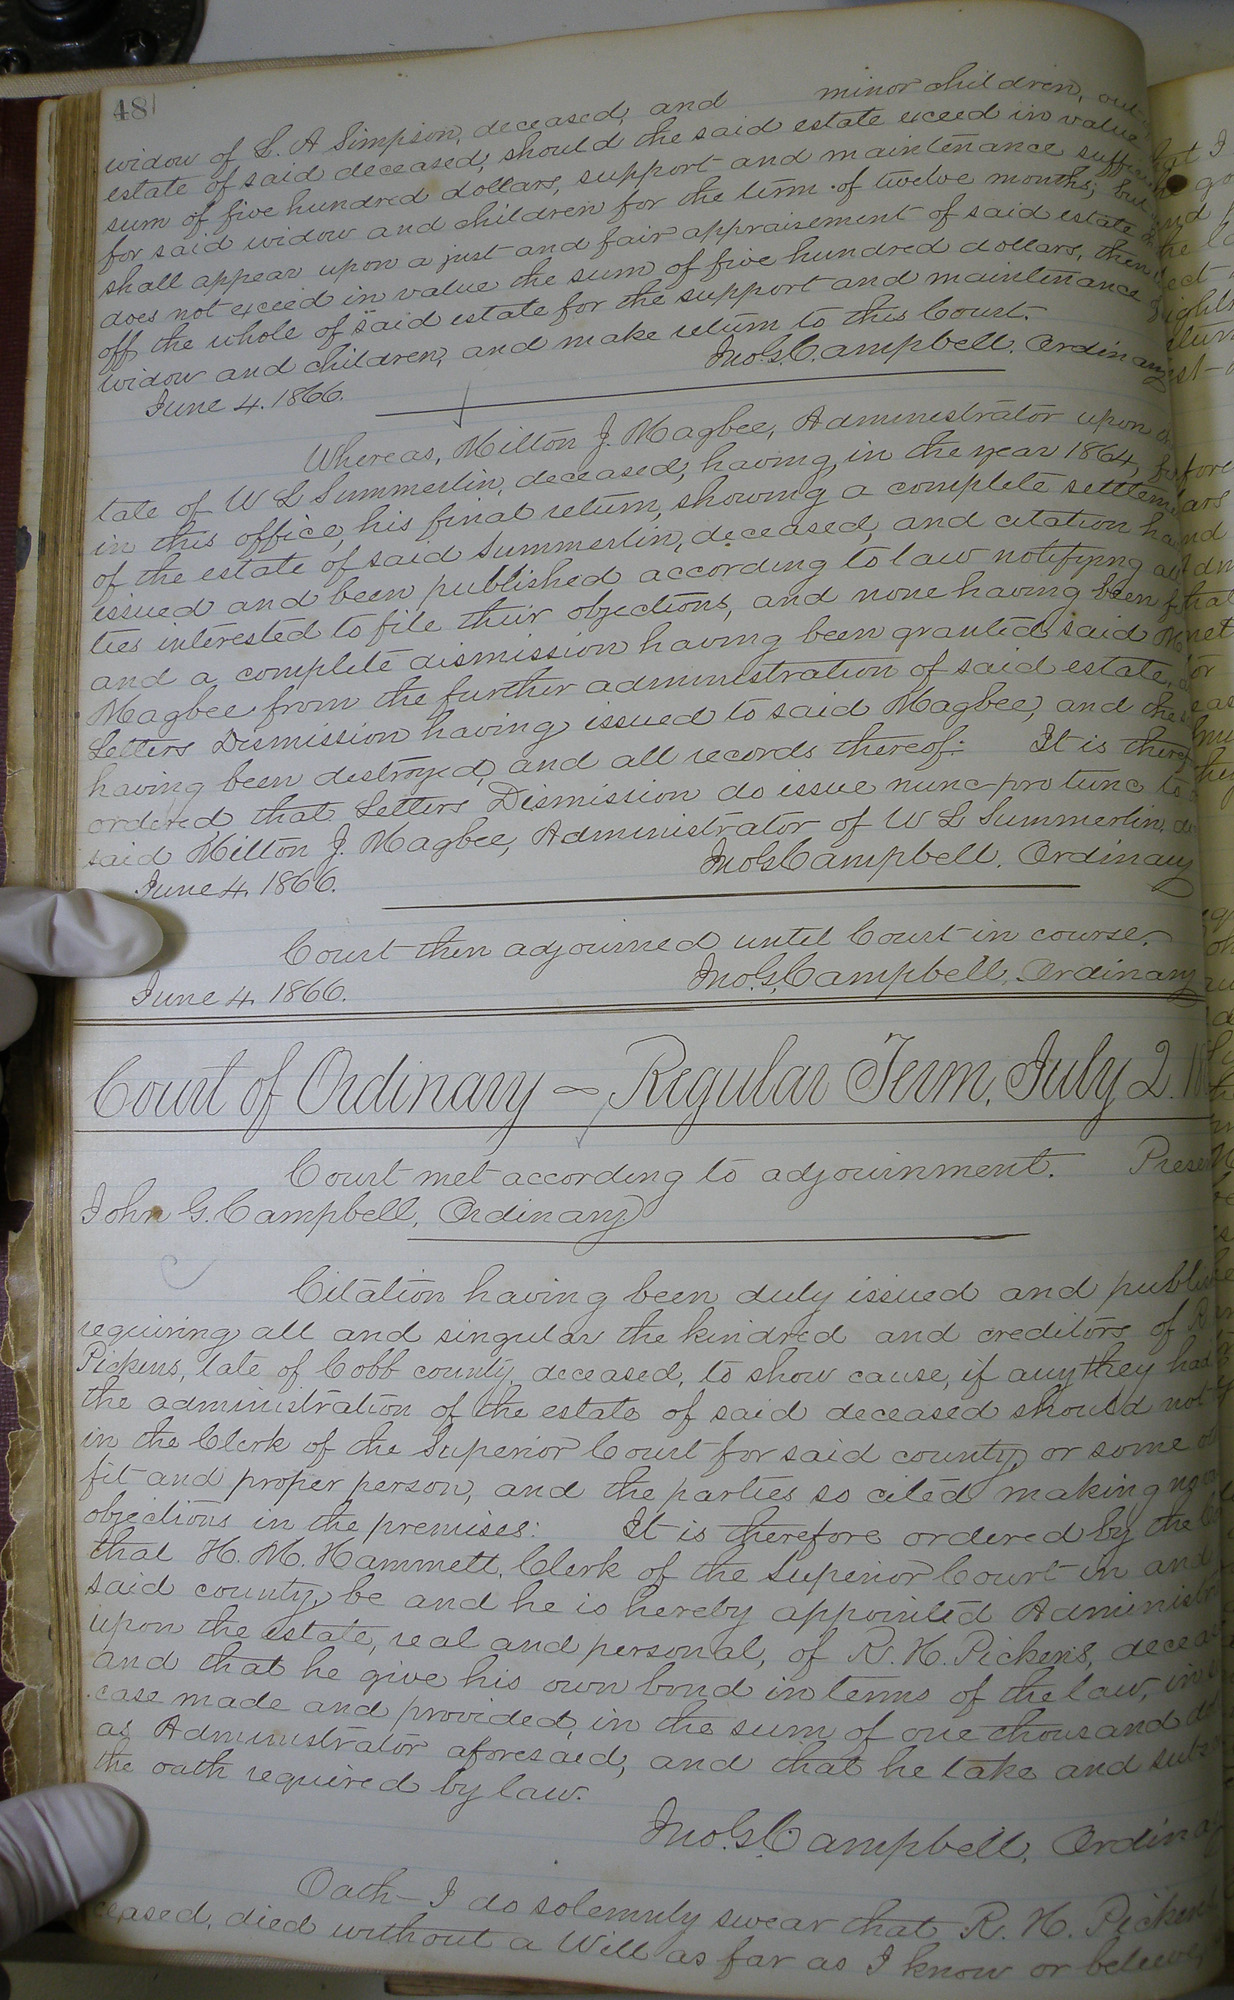 48
widow of L. A Simpson, deceased, and minor children, out
estate of said deceased, should the said estate exceed in value
sum of five hundred dollars, support and maintenance suffici
for said widow and children for the term of twelve months; but
shall appear upon a just and fair appraisement of said estate
does not exceed in value the sum of five hundred dollars, then
off the whole of said estate for the support and maintenance
widow and children, and make return to this Court.
June 4. 1866. Jno. G. Campbell. Ordinary
Whereas, Milton J. Magbee, Administrator upon
tate of W L Summerlin, deceased, having, in the year 1864,
in this office, his final return, showing a complete settlem
of the estate of said Summerlin, deceased, and citation ha
issued and been published according to law notifying
ties interested to file their objections, and none having been
and a complete dismission having been granted said M
Magbee from the further administration of said estate,
Letters Dismission having issued to said Magbee, and the
having been destroyed, and all records thereof: It is theref
ordered that Letters Dismission do issue nunc pro tunc to
said Milton J. Magbee, Administrator of W L Summerlin, de
June 4. 1866. Jno G. Campbell. Ordinary
Court then adjourned until Court in course.
June 4 1866. Jno. G. Campbell, Ordinary
Court of Ordinary ~ Regular Term, July 2. 18
Court met according to adjournment. Presen
John G. Campbell, Ordinary
Citation having been duly issued and publish
requiring all and singular the kindred and creditors of R
Pickens, late of Cobb county, deceased, to show cause, if any they had
the administration of the estate of said deceased should not
in the Clerk of the Superior Court for said county, or some
fit and proper person, and the parties so cited making no
objections in the premises: It is therefore ordered by the
that H. M. Hammett, Clerk of the Superior Court in and
said county, be and he is hereby appointed Administr
upon the estate, real and personal, of R. H. Pickens, decea
and that he give his own bond in terms of the law, in
case made and provided, in the sum of one thousand
as Administrator aforesaid, and that he take and subs
the oath required by law.
Jno. G. Campbell, Ordina
Oath — I do solemnly swear that R. H. Pickens
ceased, died without a Will as far as I know or believe,